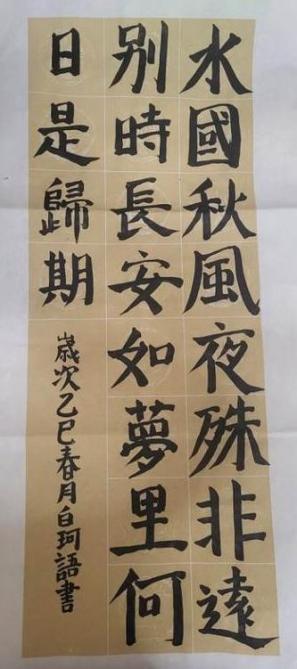 水國秋風夜殊非遠
别時長安如夢里何
日是歸期
歲次乙巳春月白珂語書